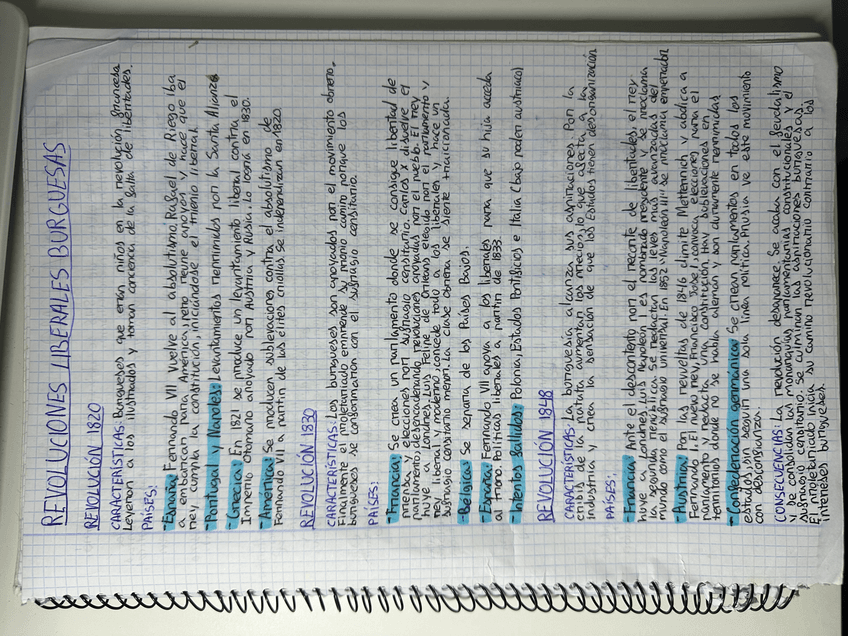 REVOLUCIONES LIBERALES BURGUESAS
REVOLUCIÓN 1820
CARACTERÍSTICAS: Burgueses que eran niños en la revolución francesa
leyeron a los ilustrados y toman conciencia de la falta de libertades.
PAÍSES:
-España: Fernando VII vuelve al absolutismo. Rafael de Riego iba
a embarcar para América, pero reúne apoyos y hace que el
rey cumpla la constitución, iniciándose el trienio liberal.
-Portugal y Nápoles: Levantamientos reprimidos por la Santa Alianza
-Grecia: En 1821 se produce un levantamiento liberal contra el
Imperio Otomano apoyado por Austria y Rusia. Lo logra en 1830.
-América: Se producen sublevaciones contra el absolutismo de
Fernando VII a partir de las élites criollas se independizan en 1820.
REVOLUCIÓN 1830
CARACTERÍSTICAS: Los burgueses son apoyados por el movimiento obrero.
Finalmente el proletariado emprende su propio camino porque los
burgueses se conformarían con el sufragio censitario.
PAÍSES:
-Francia: Se crea un parlamento donde se consigue libertad de
prensa y elecciones por sufragio censitario. Carlos X disuelve el
parlamento desencadenando revoluciones apoyadas por el pueblo. El rey
huye a Londres. Luis Felipe de Orleans elegido por el parlamento y
rey liberal y moderno, concede todo a los liberales y hace un
sufragio censitario menor. La clase obrera se siente traicionada.
-Bélgica: Se separa de los Países Bajos.
-España: Fernando VII apoya a los liberales para que su hija acceda
al trono. Políticas liberales a partir de 1833.
-Intentos fallidos: Polonia, Estados Pontificios e Italia (bajo poder austriaco)
REVOLUCIÓN 1848
CARACTERÍSTICAS: La burguesía alcanza sus aspiraciones. Por la
crisis de la patata aumentan los precios, lo que afecta a la
industria y crea la sensación de que los Estados tienen desorganización
PAÍSES:
-Francia: Ante el descontento por el recorte de libertades, el rey
huye a Londres. Luis Napoleón es nombrado presidente y se proclama
la segunda república. Se redactan las leyes más avanzadas del
mundo como el sufragio universal. En 1852 "Napoleón III" se proclama emperador
-Austria: Por las revueltas de 1846 dimite Metternich y abdica a
Fernando I. El nuevo rey, Francisco José I, convoca elecciones para el
parlamento y redacta una constitución. Hay sublevaciones en
territorios donde no se habla alemán y son duramente reprimidas
-Confederación germánica: Se crean parlamentos en todos los
estados, sin seguir una sola línea política. Prusia ve este movimiento
con desconfianza.
CONSECUENCIAS: La revolución desaparece. Se acaba con el feudalismo
y se consolidan las monarquías parlamentarias constitucionales y el
sufragio censitario. Se culminan las aspiraciones burguesas.
El proletariado inicia su camino revolucionario contrario a los
intereses burgueses.